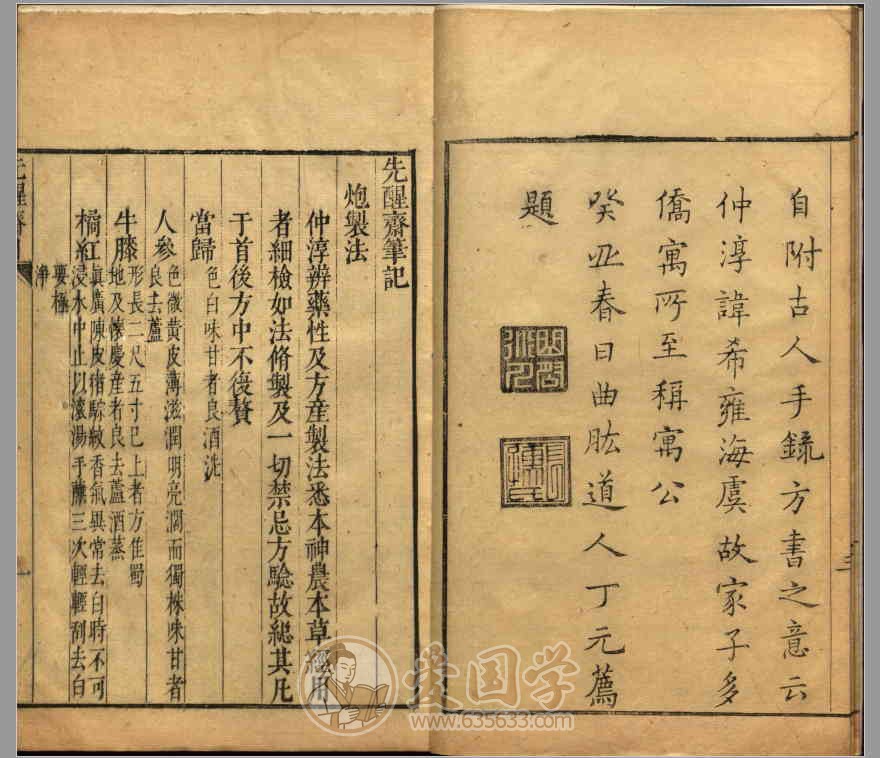 自附古人手錄方書之意云
仲淳諱希雍海虞故家子多
僑寓所至稱寓公
癸丑春日曲肱道人丁元薦
題
先醒齋筆記
炮製法
仲淳辨藥性及方產製法悉本神農本草經用
者細檢如法脩製及一切禁忌方驗故總其凡
于首後方中不復贅
當歸
色白味甘者良酒洗
人參
色微黃皮薄滋潤明亮濶而獨株味甘者
良去蘆
牛膝
形長二尺五寸已上者方佳蜀
地及懷慶產者良去蘆酒蒸
橘紅
眞廣陳皮猪鬃紋香氣異常去白時不可
浸水中止以滾湯手蘸三次輕輕刮去白
要極
淨
爱国学
www.635633.com